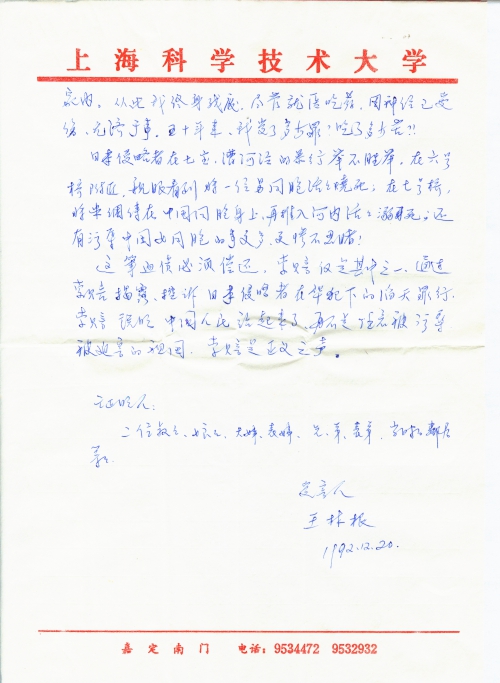 上海科学技术大学
家内。从此我终身残废,尽管就医吃药,因神经已受
伤,无济于事,五十年来,我受了多少罪?吃了多少苦?!
日本侵略者在七宝、漕河泾的暴行举不胜举,在六号
桥附近,亲眼看到将一位男同胞活活烧死;在七号桥,
将柴捆绑在中国同胞身上,再推入河内活活溺死;还
有污辱中国女同胞的事更多,更惨不忍睹!
这笔血债必须偿还,索赔仅是其中之一,通过
索赔揭露、控诉日本侵略者在华犯下的滔天罪行,
索赔说明中国人民站起来了,再不是任意被污辱
被迫害的祖国,索赔是正义之声。
证明人:
二位叔叔、大姊、表姊、兄、弟、表弟、当时的邻居
等等.
受害人
王林根
1992.12.20.
嘉定南门 电话:9534472 9532932